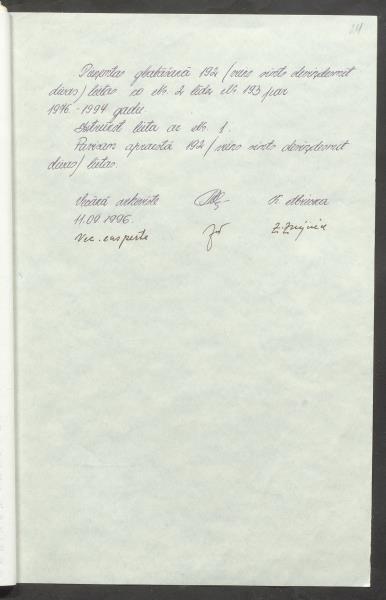 24
Pavisam glabāšanā 192 (viens simts deviņdesmit
divas) lietas ar Nr. 2 līdz Nr 193 par
1976.-1994 gadu.
lieta ar Nr. 1.
Pavisam aprakstā 192 (viens simts deviņdesmit
divas) lietas.
Vecākā arhiviste K.
11.09.1996.
Vec. eksperte Z.